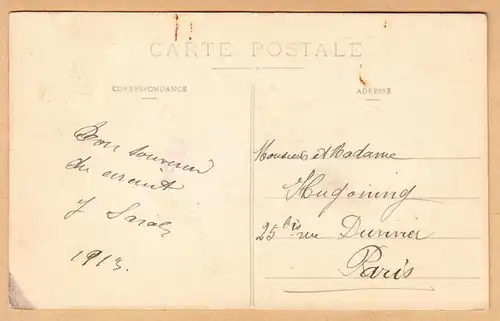 CARTE POSTALE
CORRESPONDANCE
ADRESSE
Bon souvenir
du
J
1913.
Monsieur et Madame
25 bis rue Duvivier
Paris